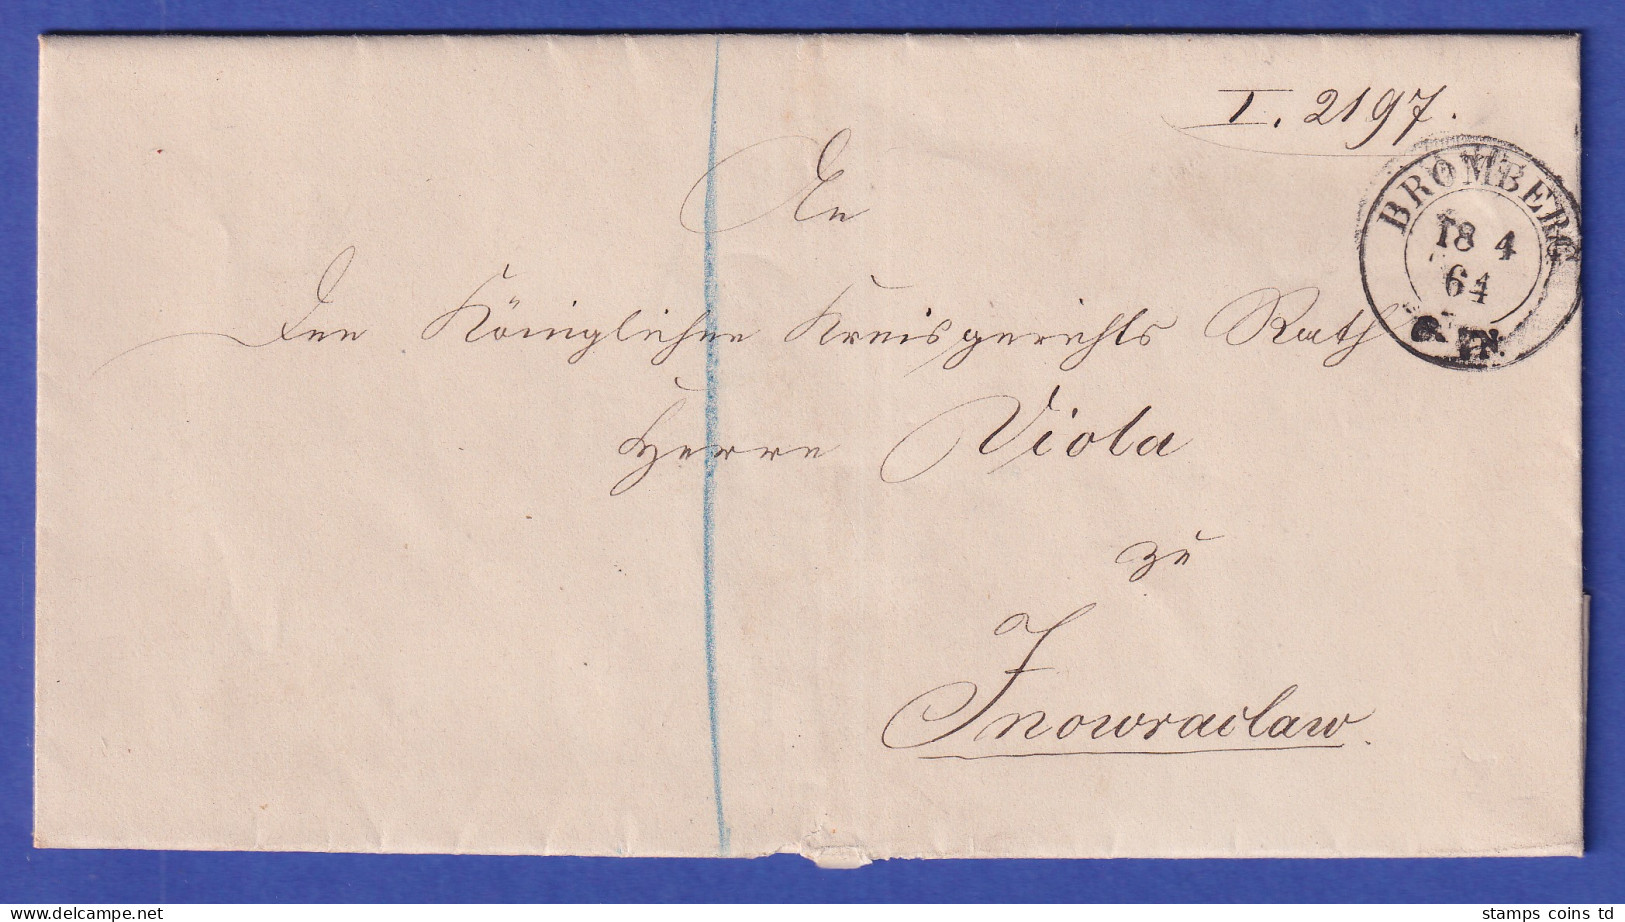 I. 2197.
BROMBERG
18 4
64
An
den Königlichen Kreisgerichts Rath
Herrn Viola
zu
Inowraclaw.
stamps coins td